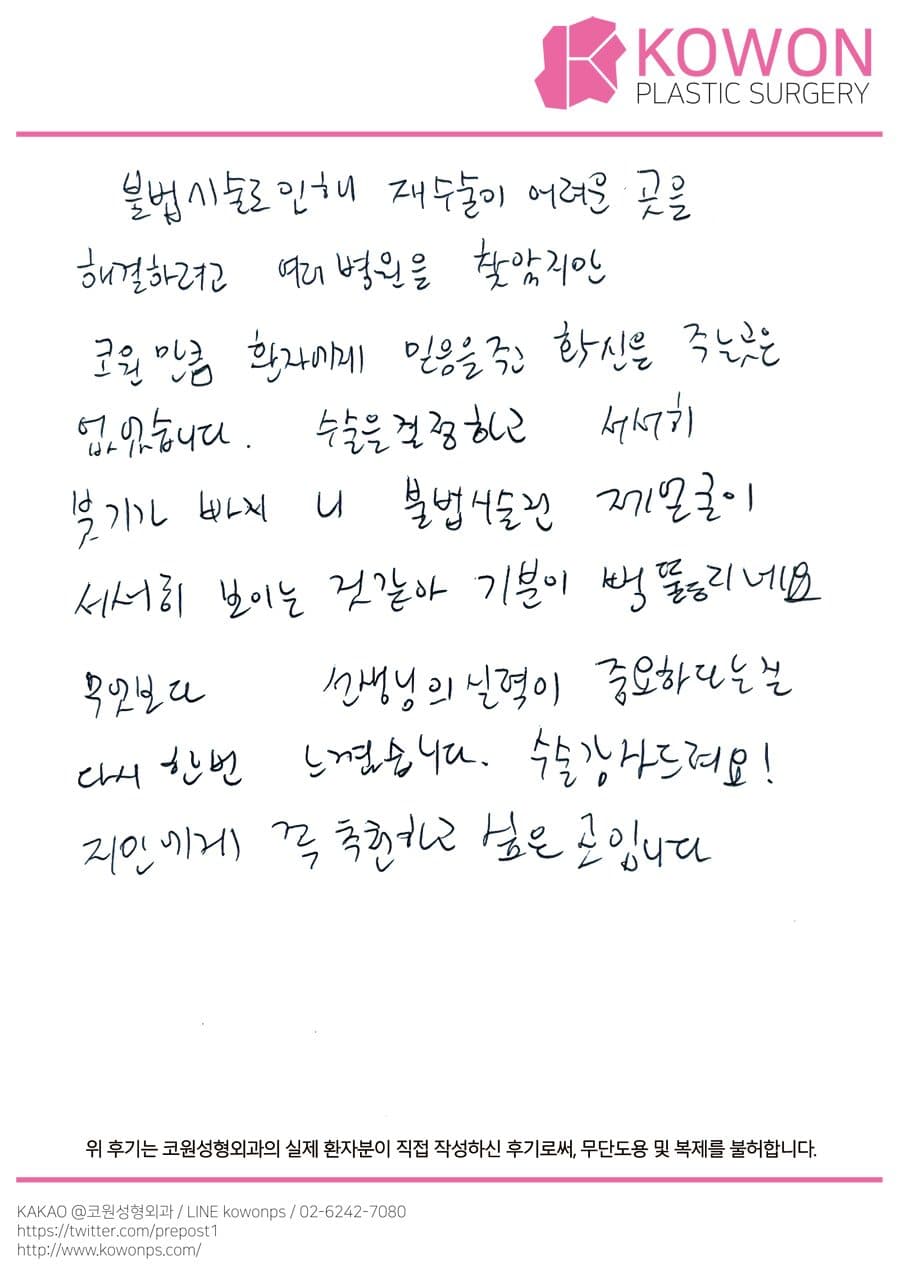 KOWON
PLASTIC SURGERY
불법시술로 인해 재수술이 어려운 곳을
해결하려고 여러 병원을 찾았지만
코원 만큼 환자에게 믿음을 주고 확신을 주는곳은
없었습니다. 수술을 결정하고 서서히
붓기가 빠지 니 불법시술된 제얼굴이
서서히 보이는 것같아 기분이 벅 뚤둥리네요
무엇보다 선생님의 실력이 중요하다는걸
다시 한번 느꼈습니다. 수술감사드려요!
지인에게 꼭 추천하고 싶은 곳입니다
위 후기는 코원성형외과의 실제 환자분이 직접 작성하신 후기로써, 무단도용 및 복제를 불허합니다.
KAKAO @코원성형외과 / LINE kowonps / 02-6242-7080
https://twitter.com/prepost1
http://www.kowonps.com/